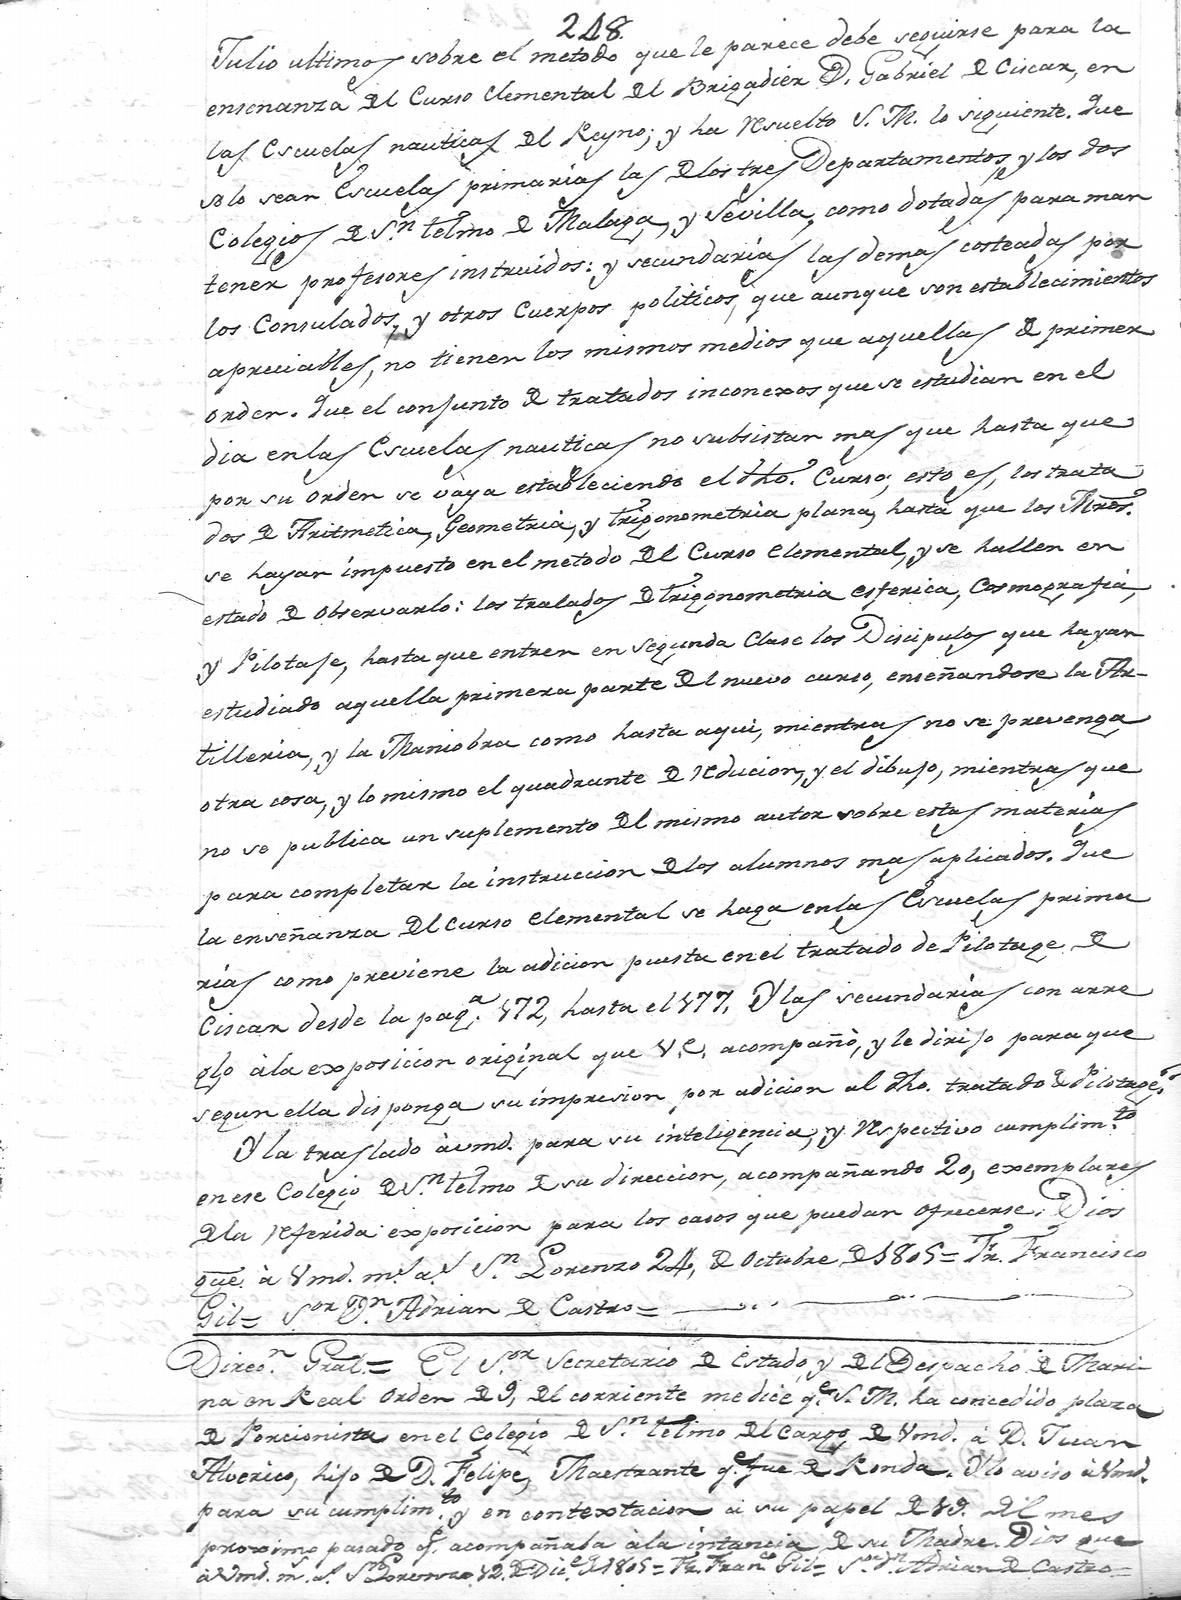 248.
Julio ultimo, sobre el metodo que le parece debe seguirse para la
enseñanza del Curso elemental del Brigadier D. Gabriel de Ciscar, en
las Escuelas nauticas del Reyno; y ha resuelto S. M. lo siguiente. Que
solo sean Escuelas primarias las de los tres Departamentos, y los dos
Colegios de S.n telmo de Malaga, y Sevilla, como dotadas para man
tener profesores instruidos: y secundarias las demas costeadas por
los Consulados, y otros Cuerpos politicos, que aunque son establecimientos
apreciables, no tienen los mismos medios que aquellas de primer
orden. Que el conjunto de tratados inconexos que se estudian en el
dia en las Escuelas nauticas no subsistan mas que hasta que
por su orden se vaya estableciendo el dho. Curso; esto es, los trata
dos de Aritmetica, Geometria, y trigonometria plana, hasta que los Mros.
se hayan impuesto en el metodo del Curso elemental, y se hallen en
estado de observarlo: los tratados de trigonometria esferica, Cosmografia,
y Pilotaje, hasta que entren en segunda Clase los Discipulos que hayan
estudiado aquella primera parte del nuevo curso, enseñandose la Ar-
tilleria, y la Maniobra como hasta aqui, mientras no se prevenga
otra cosa, y lo mismo el quadrante de reducion, y el dibujo, mientras que
no se publica un suplemento del mismo autor sobre estas materias
para completar la instruccion de los alumnos mas aplicados. Que
la enseñanza del curso elemental se haga en las Escuelas prima
rias como previene la adicion puesta en el tratado de Pilotage de
Ciscar desde la pag.a 172, hasta el 177. Y las secundarias con arre
glo à la exposicion original que V.E. acompañò, y le dirijo para que
segun ella disponga su impresion por adicion al dho. tratado de Pilotage.
Y la traslado à vmd. para su inteligencia, y respectivo cumplim.to
en ese Colegio de S.n telmo de su direccion, acompañando 20, exemplares
de la referida exposicion para los casos que puedan ofrecerse. Dios
gue. à Vmd. m.s a.s S.n Lorenzo 24, de Octubre de 1805= Fr. Francisco
Gil= S.or D.n Adrian de Castro=
Direc.n Gral= El S.or Secretario de Estado, y del Despacho de Mari
na en Real Orden de 9, del corriente me dice q.e S. M. ha concedido plaza
de Porcionista en el Colegio de S.n telmo del Cargo de Vmd. à D. Juan
Alverico, hijo de D. Felipe, Maestrante q.e fue de Ronda. Y lo aviso à Vmd.
para su cumplim.to y en contextacion à su papel de 19. del mes
proximo pasado q.e acompañaba à la intancia de su Madre. Dios gue
à Vmd. m.s a.s S.n Lorenzo 12. de Dic.e de 1805= Fr. Fran.co Gil= S.or D.n Adrian de Castro=